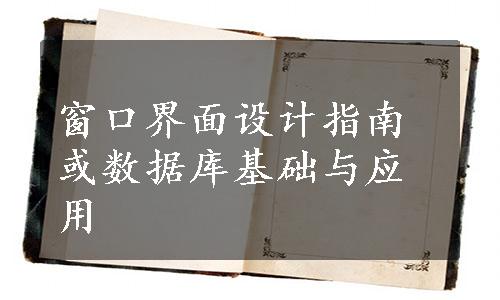 窗口界面设计指南
或数据库基础与应
用